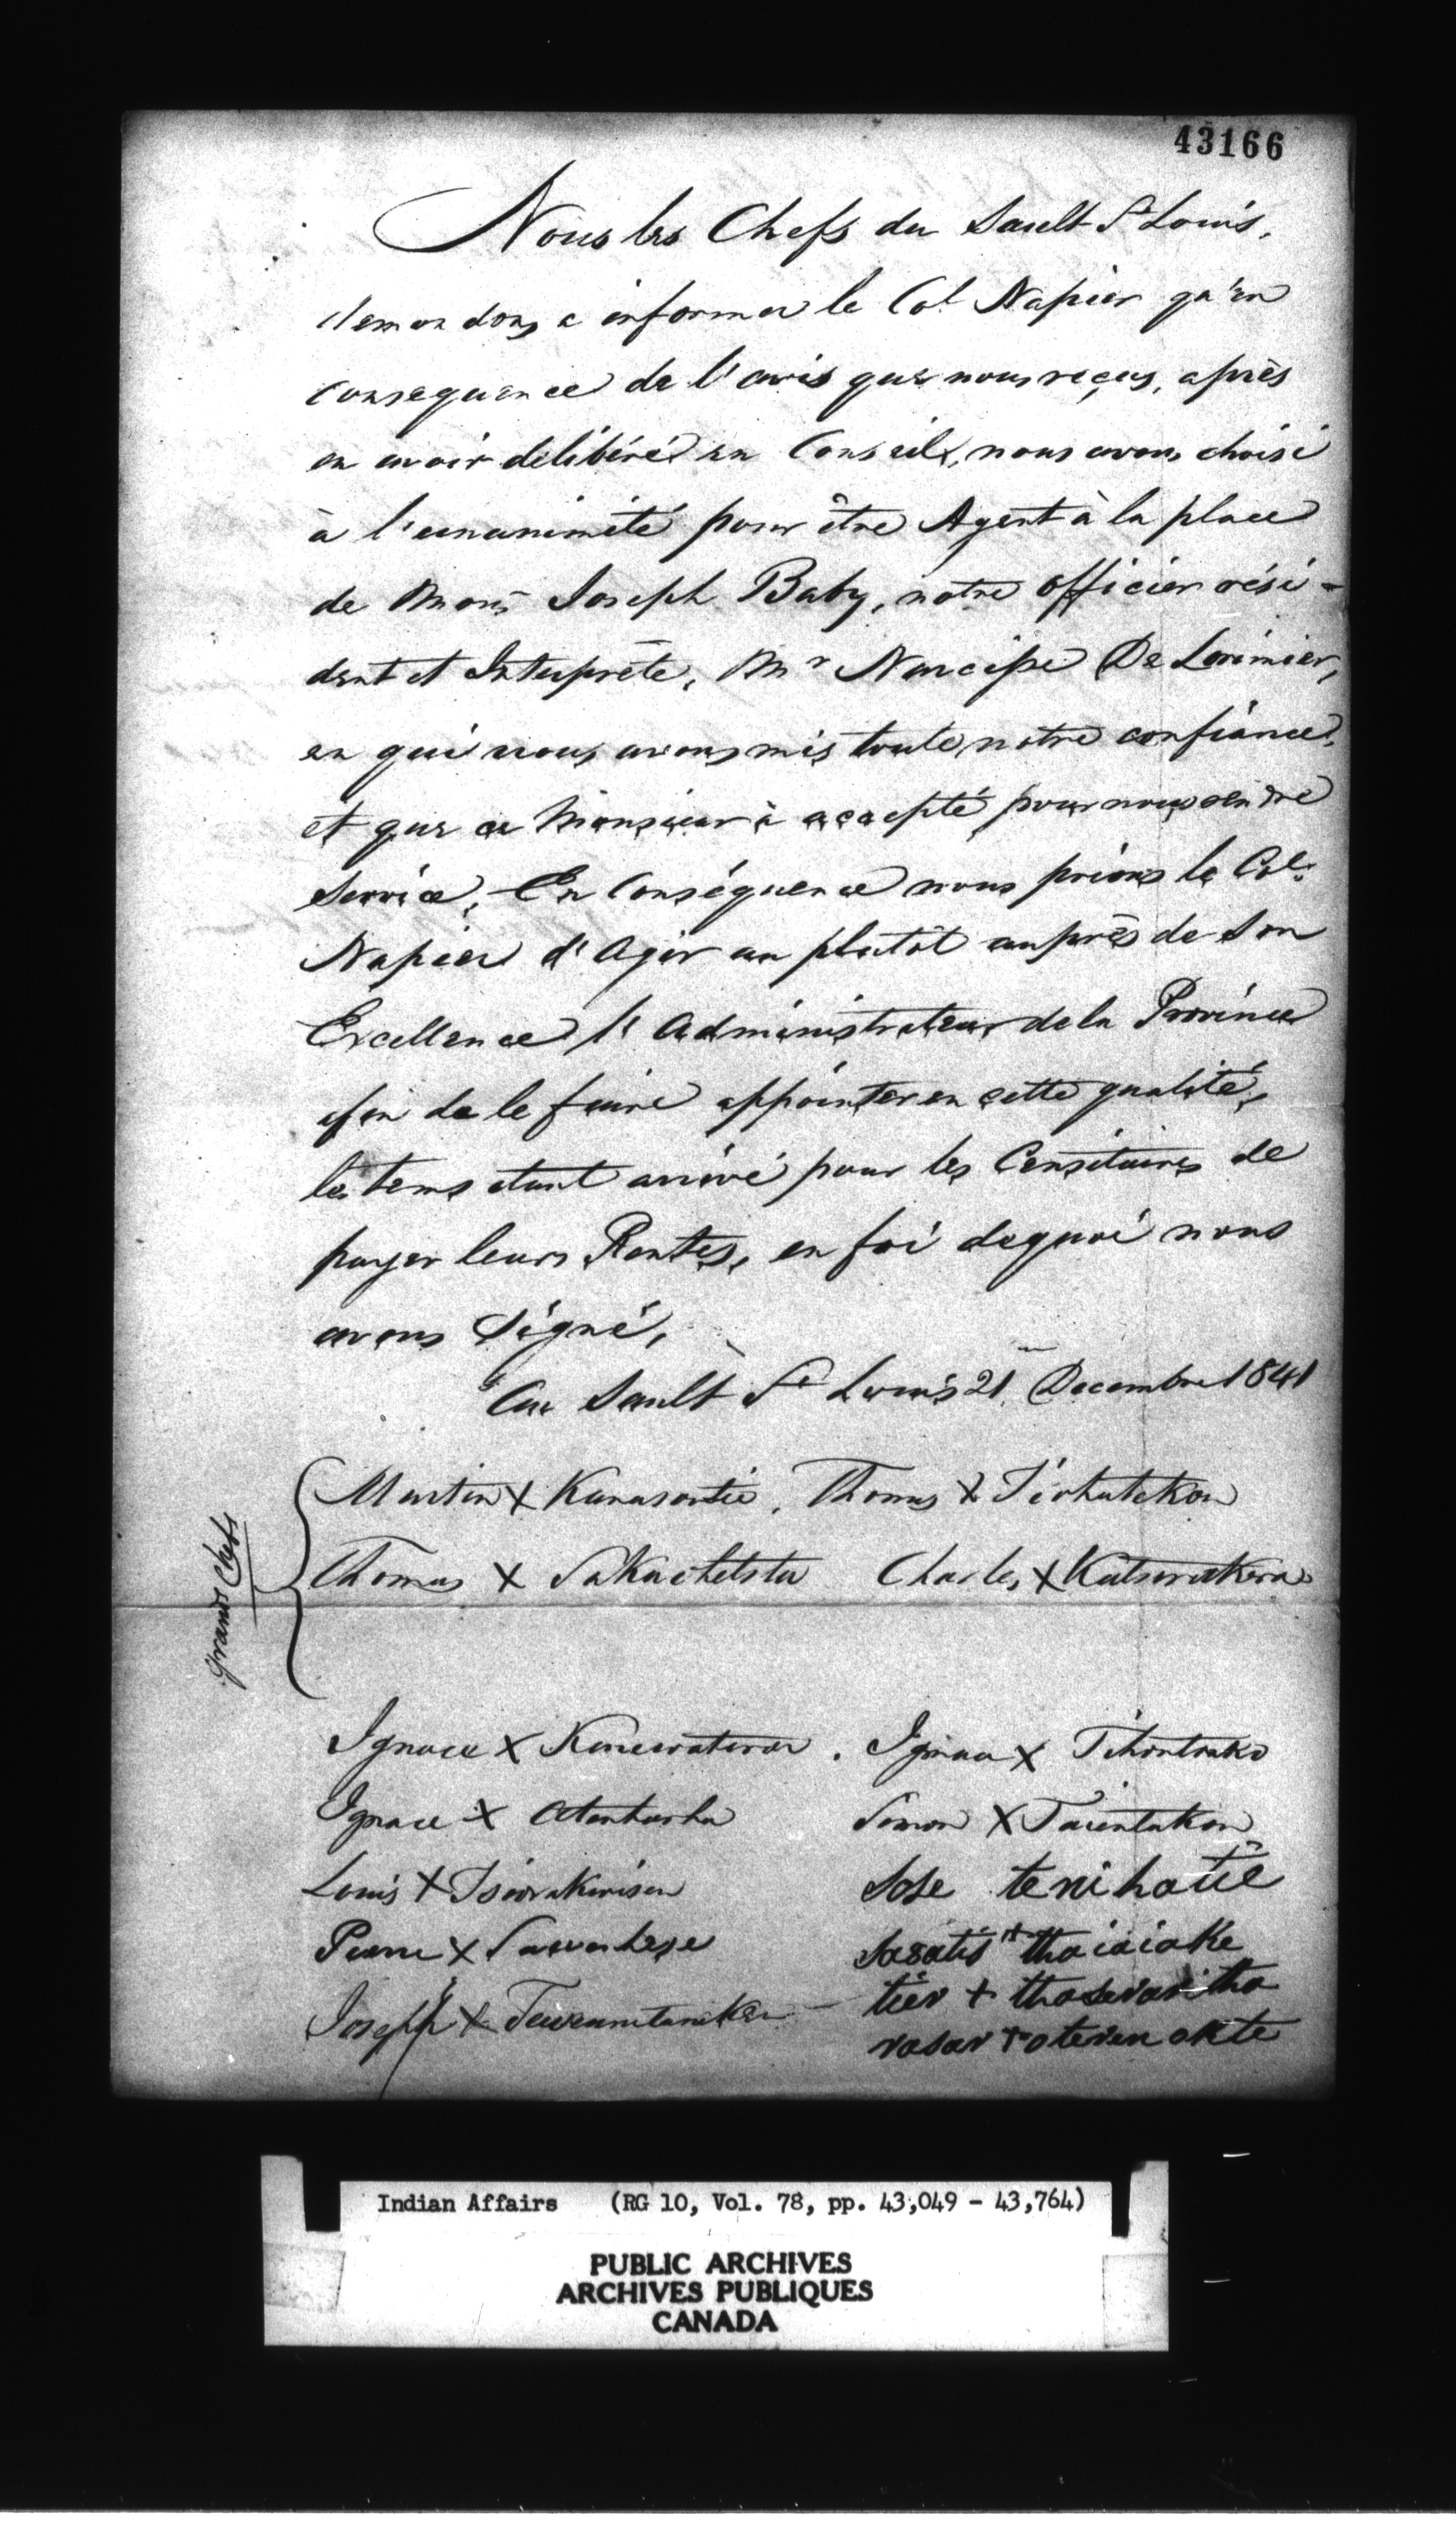 43166
Nous les Chefs du Sault St Louis,
demandons a informer le Col Napier qu'en
consequence de l'avis que nous reçus, après
en avoir delibéré en Conseil, nous avons choisi
à l'unanimité pour être Agent à la place
de Mons Joseph Baby, notre officier rési-
dent et Interprète, Mr Narcisse De Lorimier,
en qui nous avons mis toute notre confiance,
et que ce Monsieur à accepté pour nous rendre
Service, En Conséquence nous prions le Col.
Napier d'Agir au plutot auprès de Son
Excellence l'Administrateur de la Province
afin de le faire appointer en cette qualité,
le tems etant arrivé pour les Censitaires de
payer leurs Rentes, en foi dequoi nous
avons Signé,
Au Sault St Louis 21 Decembre 1841
Grands Chefs
Martin X Kanasontie, Thomas X Tiohatekon
Thomas X Sakaohetsta Charles X Katsirakera
Ignace X Kanewatiron. Ignace X Tihontrako
Ignace X Atenharha Simon X Taientakon
Louis X Tsiorakwisin Sose tenihatie
Pierre X Sawenhese Sasatis + thaiaiake
Joseph X tier + thasirontha
rasar + oterenokte
Indian Affairs (RG 10, Vol. 78, pp. 43,049 - 43,764)
PUBLIC ARCHIVES
ARCHIVES PUBLIQUES
CANADA